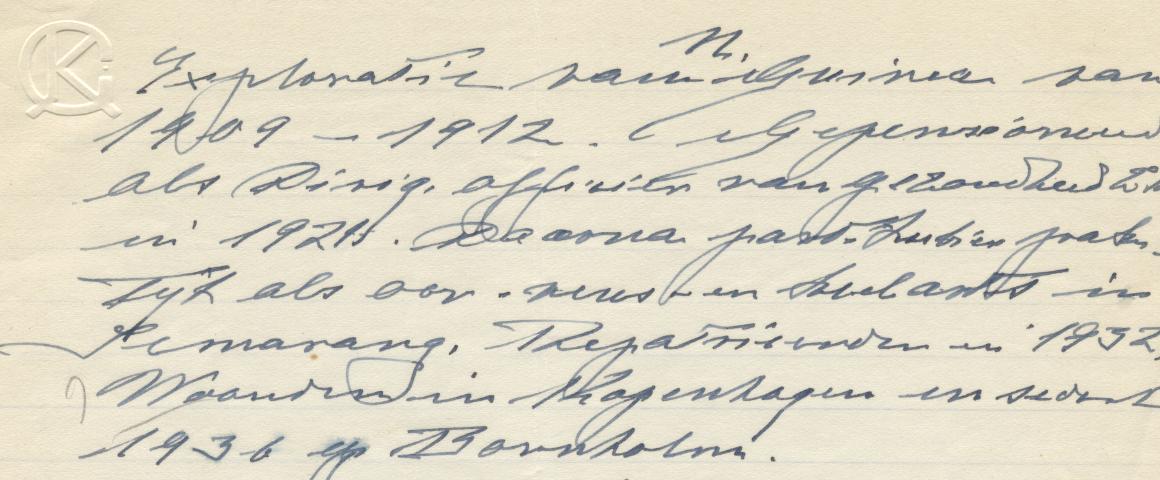 Exploratie van N. Guinea van
1909 – 1912. Gepensioneerd
als Dirig. officier van gezondheid
in 1924. Daarna particulier prak-
tijk als oor-neus- en keelarts in
Semarang. Repatrieerde in 1932,
Woonde in Kopenhagen en sedert
1936 op Bornholm.